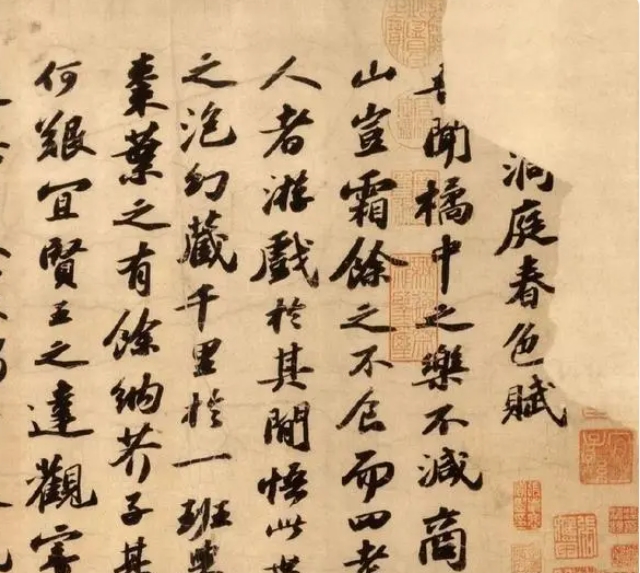 洞庭春色賦
吾聞橘中之樂不減商
山豈霜餘之不食而四老
人者游戲於其間悟此
之泡幻藏千里於一班舉
棗葉之有餘納芥子其
何艱宜賢王之達觀寄